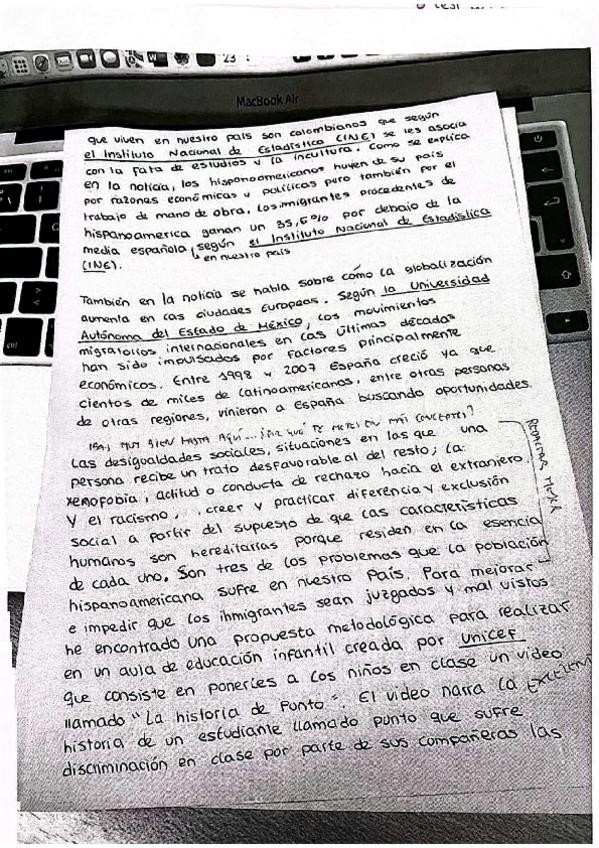 23
MacBook Air
que viven en nuestro país son colombianos que según
el Instituto Nacional de Estadística (INE) se les asocia
con la fata de estudios y la incultura. Como se explica
en la noticia, los hispanoamericanos huyen de su país
por razones económicas y políticas pero también por el
trabajo de mano de obra. Los inmigrantes procedentes de
hispanoamerica ganan un 35,6% por debajo de la
media española, según el Instituto Nacional de Estadistica
en nuestro país
(INE).
También en la noticia se habla sobre cómo la globalización
aumenta en las ciudades Europeas. Según la Universidad
Autónoma del Estado de México, los movimientos
migratorios internacionales en las últimas décadas
han sido impulsados por factores principalmente
económicos. Entre 1998 y 2007 España creció ya que
cientos de miles de latinoamericanos, entre otras personas
de otras regiones, vinieron a España buscando oportunidades.
MUY BIEN HASTA AQUÍ... ¿POR QUÉ TE METES EN MÁS CONCEPTOS?
Las desigualdades sociales, situaciones en las que una
persona recibe un trato desfavorable al del resto; la
xenofobia, actitud o conducta de rechazo hacia el extranjero
y el racismo, creer y practicar diferencia y exclusión
social a partir del supuesto de que las características
humanos son hereditarias porque residen en la esencia
de cada uno. Son tres de los problemas que la población
hispanoamericana sufre en nuestro País. Para mejorar
e impedir que los inmigrantes sean juzgados y mal vistos
he encontrado una propuesta metodológica para realizar
en un aula de educación infantil creada por Unicef
que consiste en ponerles a los niños en clase un video
llamado "La historia de Punto". El video narra la
historia de un estudiante llamado punto que sufre
discriminación en clase por parte de sus compañeras las
REDACTAR